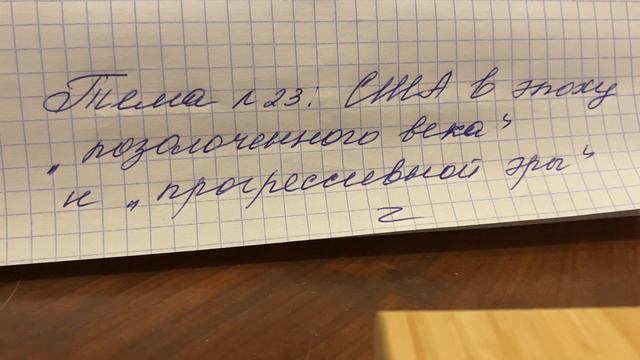 Тема № 23: США в эпоху
„позолоченного века"
и „прогрессивной эры"